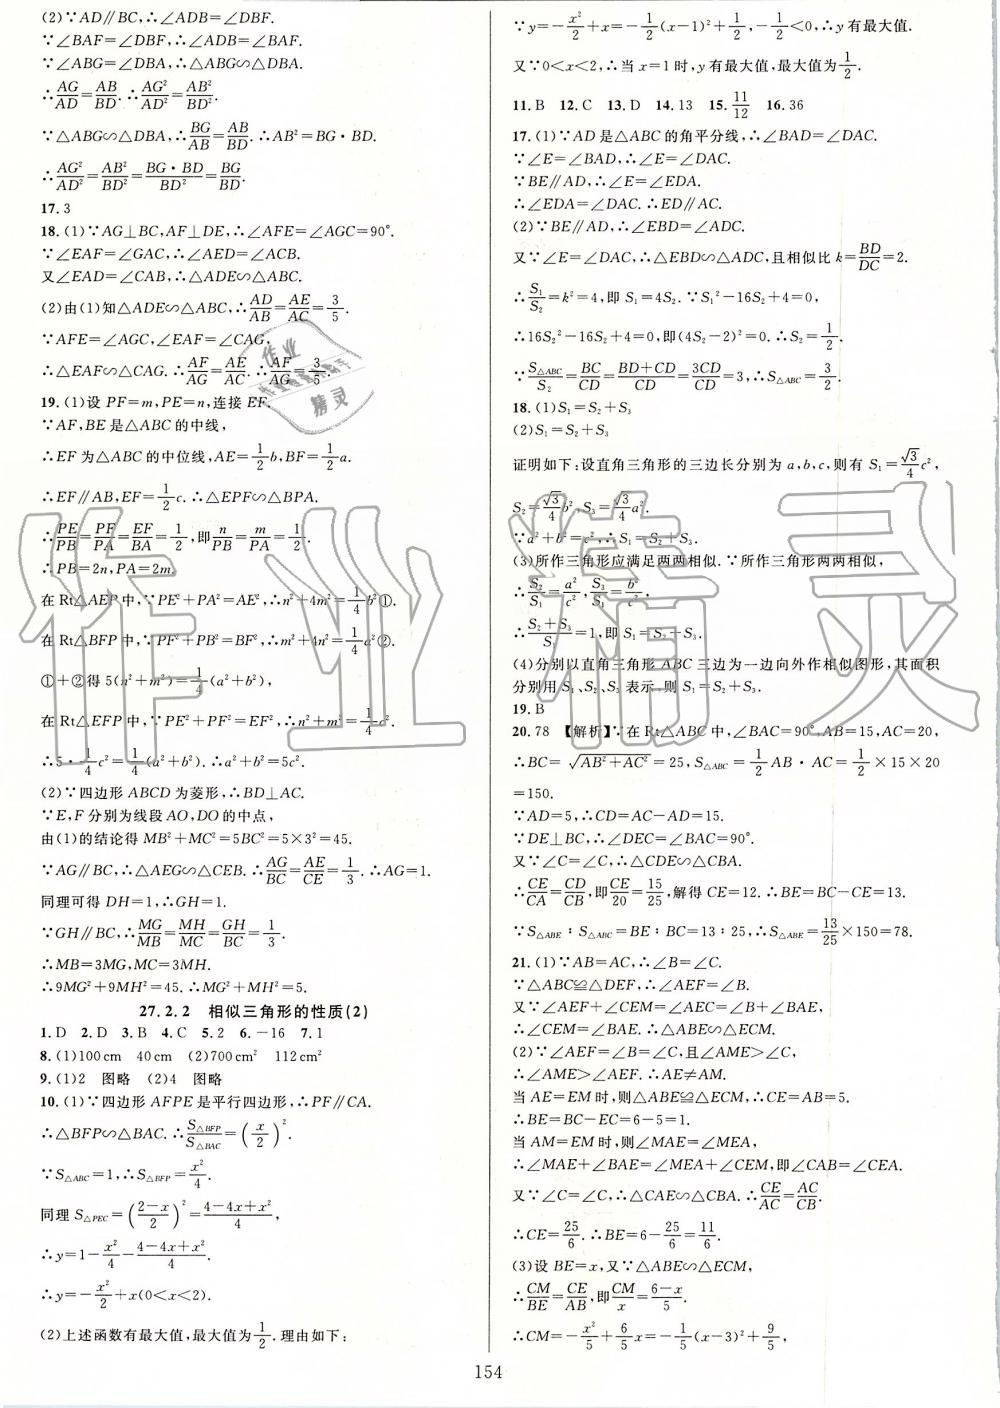 (2)∵AD∥BC,∴∠ADB=∠DBF.
∵∠BAF=∠DBF,∴∠ADB=∠BAF.
∵∠ABG=∠DBA,∴△ABG∽△DBA.
∴AG/AD=AB/BD.∴AG²/AD²=AB²/BD².
∵△ABG∽△DBA,∴BG/AB=AB/BD.∴AB²=BG·BD.
∴AG²/AD²=AB²/BD²=BG·BD/BD²=BG/BD.
17.3
18.(1)∵AG⊥BC,AF⊥DE,∴∠AFE=∠AGC=90°.
∵∠EAF=∠GAC,∴∠AED=∠ACB.
又∠EAD=∠CAB,∴△ADE∽△ABC.
(2)由(1)知△ADE∽△ABC,∴AD/AB=AE/AC=3/5.
∵AFE=∠AGC,∠EAF=∠CAG,
∴△EAF∽△CAG.∴AF/AG=AE/AC.∴AF/AG=3/5.
19.(1)设PF=m,PE=n,连接EF,
∵AF,BE是△ABC的中线,
∴EF为△ABC的中位线,AE=1/2b,BF=1/2a.
∴EF∥AB,EF=1/2c.∴△EPF∽△BPA.
∴PE/PB=PF/PA=EF/BA=1/2,即n/PB=m/PA=1/2.
∴PB=2n,PA=2m.
在Rt△AEP中,∵PE²+PA²=AE²,∴n²+4m²=1/4b²①.
在Rt△BFP中,∵PF²+PB²=BF²,∴m²+4n²=1/4a²②.
①+②得5(n²+m²)=1/4(a²+b²),
在Rt△EFP中,∵PE²+PF²=EF²,∴n²+m²=1/4c².
∴5·1/4c²=1/4(a²+b²).∴a²+b²=5c².
(2)∵四边形ABCD为菱形,∴BD⊥AC.
∵E,F分别为线段AO,DO的中点,
由(1)的结论得MB²+MC²=5BC²=5×3²=45.
∵AG∥BC,∴△AEG∽△CEB.∴AG/BC=AE/CE=1/3.∴AG=1.
同理可得DH=1,∴GH=1.
∵GH∥BC,∴MG/MB=MH/MC=GH/BC=1/3.
∴MB=3MG,MC=3MH.
∴9MG²+9MH²=45.∴MG²+MH²=5.
27.2.2 相似三角形的性质(2)
1.D 2.D 3.B 4.C 5.2 6.-16 7.1
8.(1)100cm 40cm (2)700cm² 112cm²
9.(1)2 图略 (2)4 图略
10.(1)∵四边形AFPE是平行四边形,∴PF∥CA.
∴△BFP∽△BAC.∴S△BFP/S△BAC=(x/2)².
∵S△ABC=1,∴S△BFP=x²/4.
同理S△PEC=((2-x)/2)²=(4-4x+x²)/4,
∴y=1-x²/4-(4-4x+x²)/4.
∴y=-x²/2+x(0<x<2).
(2)上述函数有最大值,最大值为1/2.理由如下:
∵y=-x²/2+x=-1/2(x-1)²+1/2,-1/2<0,∴y有最大值.
又∵0<x<2,∴当x=1时,y有最大值,最大值为1/2.
11.B 12.C 13.D 14.13 15.11/12 16.36
17.(1)∵AD是△ABC的角平分线,∴∠BAD=∠DAC.
∵∠E=∠BAD,∴∠E=∠DAC.
∵BE∥AD,∴∠E=∠EDA.
∴∠EDA=∠DAC.∴ED∥AC.
(2)∵BE∥AD,∴∠EBD=∠ADC.
又∵∠E=∠DAC,∴△EBD∽△ADC,且相似比k=BD/DC=2.
∴S₁/S₂=k²=4,即S₁=4S₂.∵S₁²-16S₂+4=0,
∴16S₂²-16S₂+4=0,即(4S₂-2)²=0.∴S₂=1/2.
∵S△ABC/S₂=BC/CD=(BD+CD)/CD=3CD/CD=3,∴S△ABC=3/2.
18.(1)S₁=S₂+S₃
(2)S₁=S₂+S₃
证明如下:设直角三角形的三边长分别为a,b,c,则有S₁=√3/4c²,
S₂=√3/4b²,S₃=√3/4a².
∵a²+b²=c²,∴S₁=S₂+S₃.
(3)所作三角形应满足两两相似.∵所作三角形两两相似,
∴S₂/S₁=a²/c²,S₃/S₁=b²/c².
∴(S₂+S₃)/S₁=1,即S₁=S₂+S₃.
(4)分别以直角三角形ABC三边为一边向外作相似图形,其面积
分别用S₁、S₂、S₃表示,则S₁=S₂+S₃.
19.B
20.78 【解析】∵在Rt△ABC中,∠BAC=90°,AB=15,AC=20,
∴BC=√(AB²+AC²)=25,S△ABC=1/2AB·AC=1/2×15×20
=150.
∵AD=5,∴CD=AC-AD=15.
∵DE⊥BC,∴∠DEC=∠BAC=90°.
又∵∠C=∠C,∴△CDE∽△CBA.
∴CE/CA=CD/CB,即CE/20=15/25,解得CE=12.∴BE=BC-CE=13.
∵S△ABE∶S△ABC=BE∶BC=13∶25,∴S△ABE=13/25×150=78.
21.(1)∵AB=AC,∴∠B=∠C.
∵△ABC≌△DEF,∴∠AEF=∠B.
又∵∠AEF+∠CEM=∠AEC=∠B+∠BAE,
∴∠CEM=∠BAE.∴△ABE∽△ECM.
(2)∵∠AEF=∠B=∠C,且∠AME>∠C,
∴∠AME>∠AEF.∴AE≠AM.
当AE=EM时,则△ABE≌△ECM,∴CE=AB=5.
∴BE=BC-EC=6-5=1.
当AM=EM时,则∠MAE=∠MEA,
∴∠MAE+∠BAE=∠MEA+∠CEM,即∠CAB=∠CEA.
又∵∠C=∠C,∴△CAE∽△CBA.∴CE/AC=AC/CB.
∴CE=25/6.∴BE=6-25/6=11/6.
(3)设BE=x,又∵△ABE∽△ECM,
∴CM/BE=CE/AB,即CM/x=(6-x)/5.
∴CM=-x²/5+6/5x=-1/5(x-3)²+9/5,
154
作业精灵